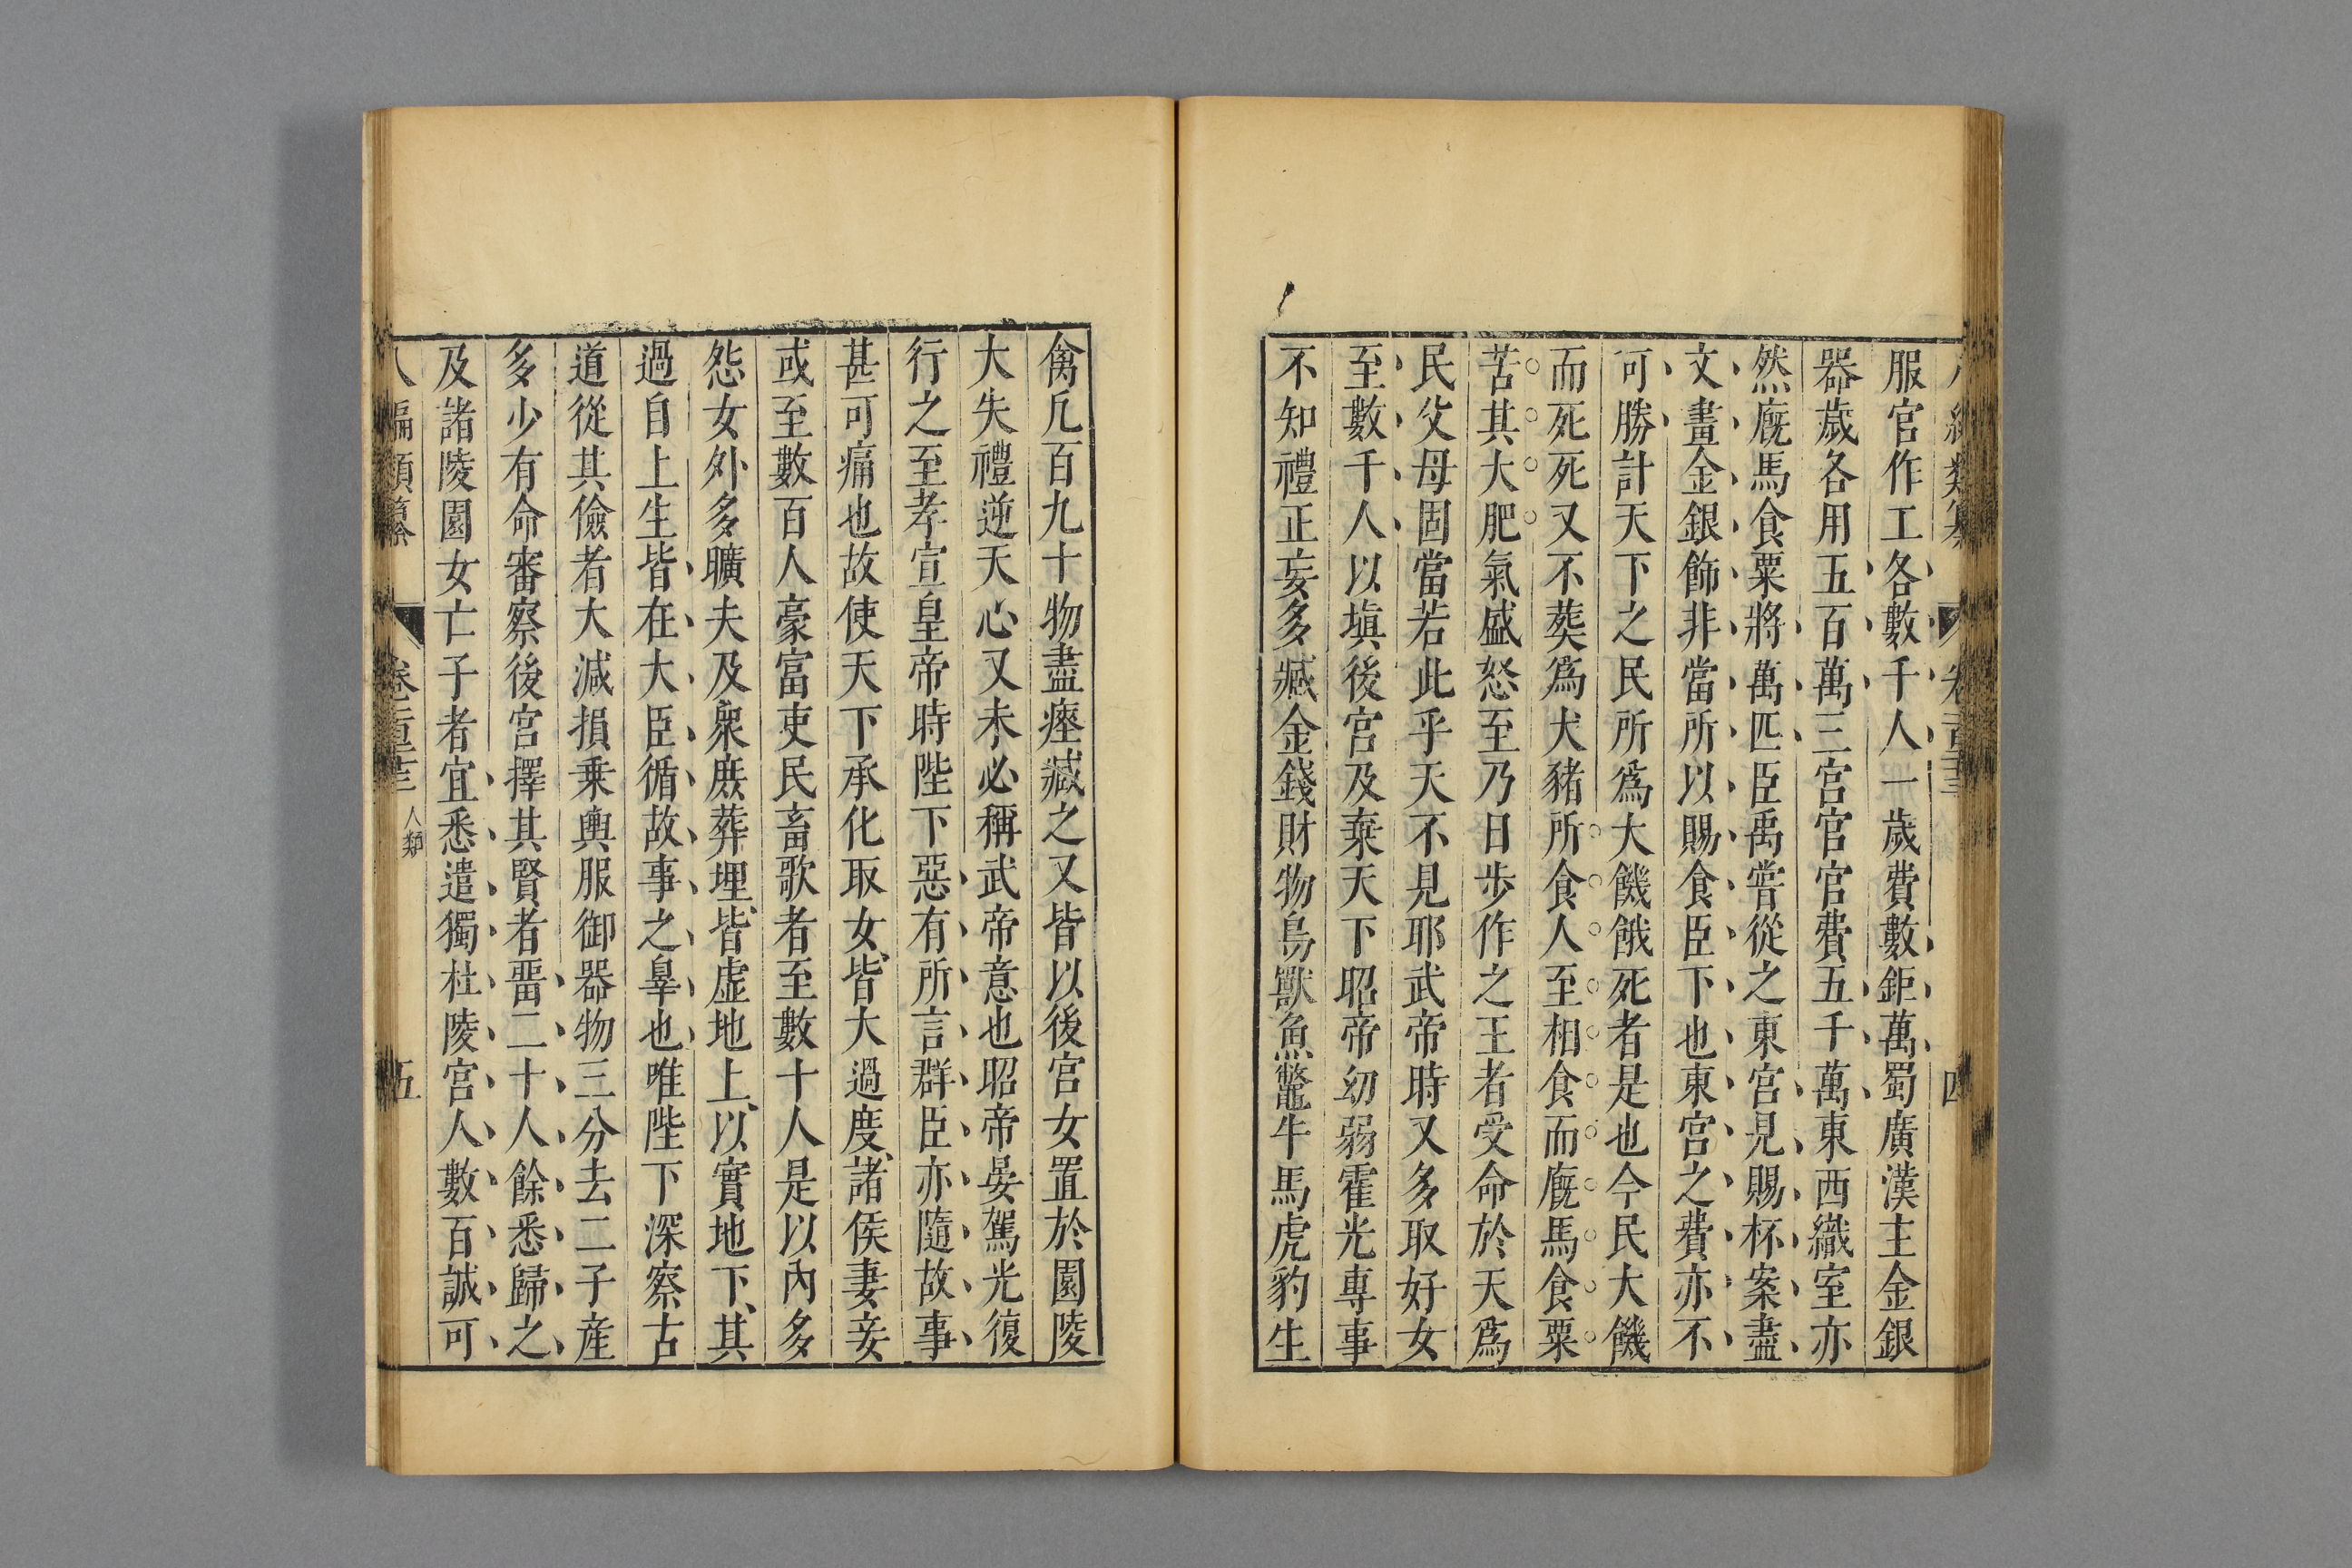 服官作工各數千人一歲費數鉅萬蜀廣漢主金銀
器歲各用五百萬三宫官官費五千萬東西織室亦
然廐馬食粟將萬匹臣禹嘗從之東宫見賜杯案盡
文畫金銀飾非當所以賜食臣下也東宫之費亦不
可勝計天下之民所爲大饑餓死者是也今民大饑
而死死又不葬爲犬豬所食人至相食而廐馬食粟
苦其大肥氣盛怒至乃日步作之王者受命於天爲
民父母固當若此乎天不見耶武帝時又多取好女
至數千人以塡後宫及棄天下昭帝幼弱霍光專事
不知禮正妄多臧金錢財物鳥獸魚鼈牛馬虎豹生
禽凡百九十物盡瘞臧之又皆以後宫女置於園陵
大失禮逆天心又未必稱武帝意也昭帝晏駕光復
行之至孝宣皇帝時陛下惡有所言群臣亦隨故事
甚可痛也故使天下承化取女皆大過度諸侯妻妾
或至數百人豪富吏民畜歌者至數十人是以內多
怨女外多曠夫及衆庶葬埋皆虛地上以實地下其
過自上生皆在大臣循故事之辠也唯陛下深察古
道從其儉者大減損乗輿服御器物三分去二子産
多少有命審察後宫擇其賢者畱二十人餘悉歸之
及諸陵園女亡子者宜悉遣獨杜陵宫人數百誠可
八編類纂 人類 五